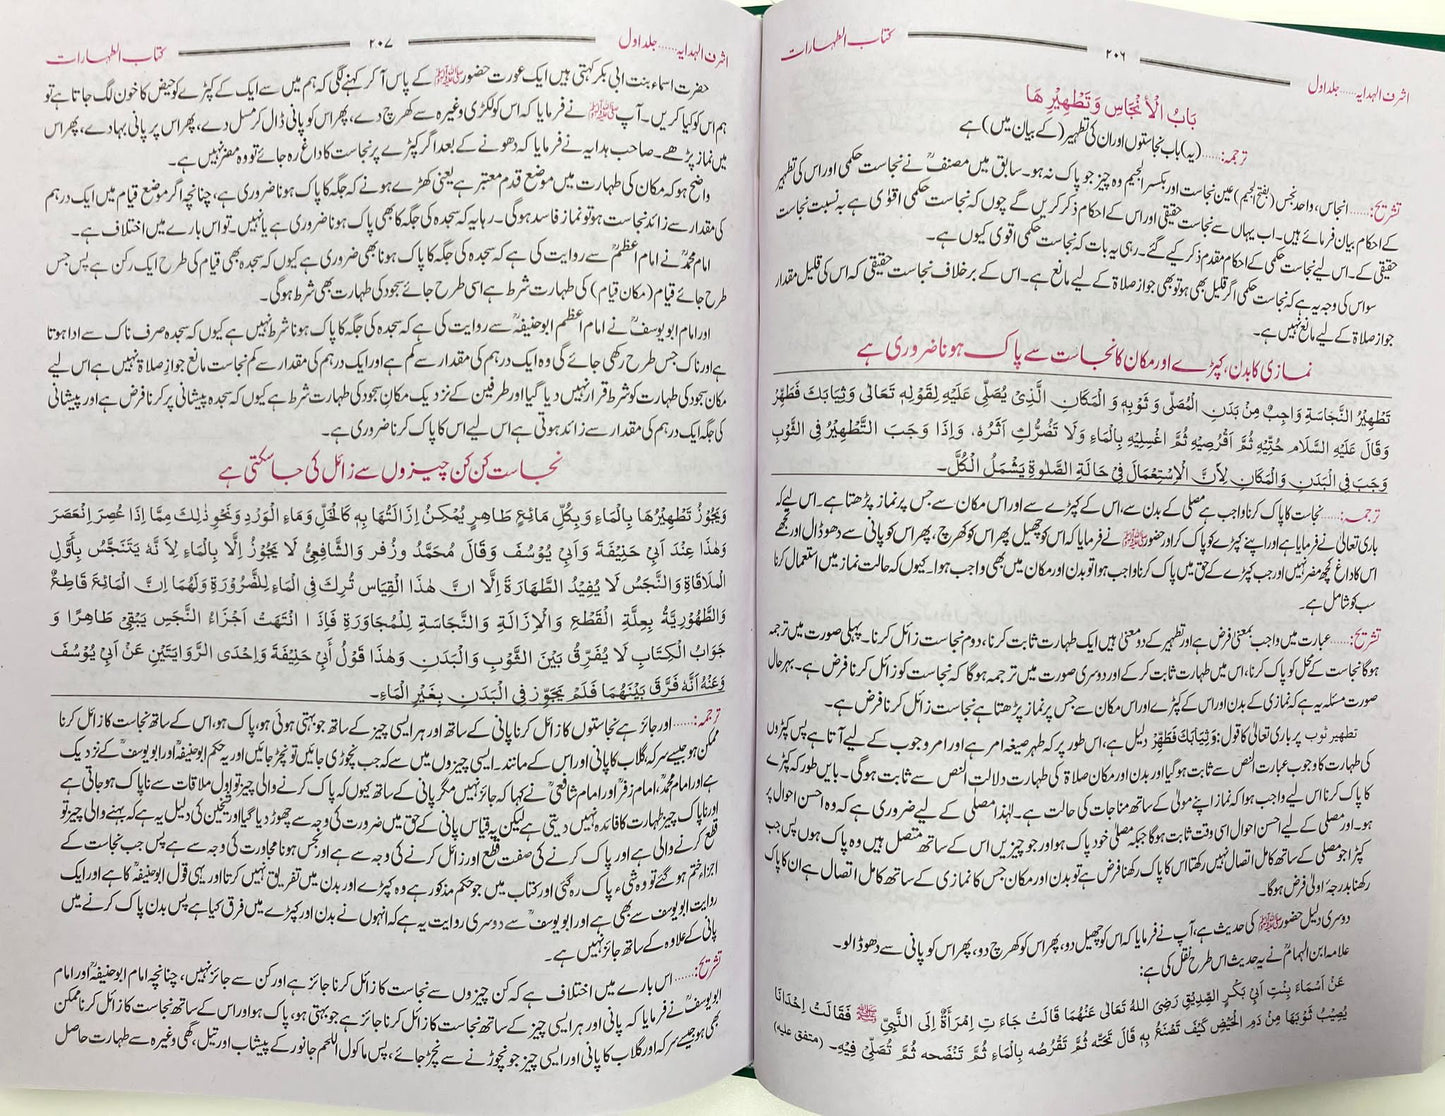 اشرف الہدایہ......جلد اول ۲۰۶ کتاب الطہارات
بَابُ الْاَنْجَاسِ وَتَطْهِيْرِهَا
ترجمہ:......(یہ) باب نجاستوں اور ان کی تطہیر (کے بیان میں) ہے
تشریح:......انجاس، واحد نجس (بفتح الجیم) عین نجاست اور بکسر الجیم وہ چیز جو پاک نہ ہو۔ سابق میں مصنفؒ نے نجاست حکمی اور اس کی تطہیر
کے احکام بیان فرمائے ہیں۔ اب یہاں سے نجاست حقیقی اور اس کے احکام ذکر کریں گے چوں کہ نجاست حکمی اقوی ہے بہ نسبت نجاست
حقیقی کے۔ اس لیے نجاست حکمی کے احکام مقدم ذکر کیے گئے۔ رہی یہ بات کہ نجاست حکمی اقوی کیوں ہے۔
سو اس کی وجہ یہ ہے کہ نجاست حکمی اگر قلیل بھی ہو تو بھی جواز صلاۃ کے لیے مانع ہے۔ اس کے برخلاف نجاست حقیقی کہ اس کی قلیل مقدار
جواز صلاۃ کے لیے مانع نہیں ہے۔
نمازی کا بدن، کپڑے اور مکان کا نجاست سے پاک ہونا ضروری ہے
تَطْهِيْرُ النَّجَاسَةِ وَاجِبٌ مِنْ بَدَنِ الْمُصَلِّى وَ ثَوْبِهٖ وَ الْمَكَانِ الَّذِىْ يُصَلِّى عَلَيْهِ لِقَوْلِهٖ تَعَالٰى وَثِيَابَكَ فَطَهِّرْ
وَ قَالَ عَلَيْهِ السَّلَام حُتِّيْهِ ثُمَّ اقْرُصِيْهِ ثُمَّ اغْسِلِيْهِ بِالْمَاءِ وَلَا تَضُرُّكِ اَثَرُهٗ، وَاِذَا وَجَبَ التَّطْهِيْرُ فِى الثَّوْبِ
وَجَبَ فِى الْبَدَنِ وَالْمَكَانِ لِاَنَّ الْاِسْتِعْمَالَ فِىْ حَالَةِ الصَّلٰوةِ يَشْمَلُ الْكُلَّ۔
ترجمہ:......نجاست کا پاک کرنا واجب ہے مصلی کے بدن سے، اس کے کپڑے سے اور اس مکان سے جس پر نماز پڑھتا ہے۔ اس لیے کہ
باری تعالیٰ نے فرمایا ہے اور اپنے کپڑے کو پاک کر اور حضور ﷺ نے فرمایا کہ اس کو چھیل پھر اس کو کھرچ، پھر اس کو پانی سے دھو ڈال اور تجھے
اس کا داغ کچھ مضر نہیں اور جب کپڑے کے حق میں پاک کرنا واجب ہوا تو بدن اور مکان میں بھی واجب ہوا۔ کیوں کہ حالت نماز میں استعمال کرنا
سب کو شامل ہے۔
تشریح:......عبارت میں واجب بمعنی فرض ہے اور تطہیر کے دو معنی ہیں ایک طہارت ثابت کرنا، دوم نجاست زائل کرنا۔ پہلی صورت میں ترجمہ
ہوگا نجاست کے محل کو پاک کرنا، اس میں طہارت ثابت کر کے اور دوسری صورت میں ترجمہ ہوگا کہ نجاست کو زائل کرنا فرض ہے۔ بہر حال
صورت مسئلہ یہ ہے کہ نمازی کے بدن اور اس کے کپڑے اور اس مکان سے جس پر نماز پڑھتا ہے نجاست زائل کرنا فرض ہے۔
تطہیر ثوب پر باری تعالیٰ کا قول: وَثِيَابَكَ فَطَهِّرْ دلیل ہے، اس طور پر کہ طہر صیغہ امر ہے اور امر وجوب کے لیے آتا ہے پس کپڑوں
کی طہارت کا وجوب عبارت النص سے ثابت ہوگیا اور بدن اور مکان صلاۃ کی طہارت دلالت النص سے ثابت ہوگی۔ بایں طور کہ کپڑے
کا پاک کرنا اس لیے واجب ہوا کہ نماز اپنے مولیٰ کے ساتھ مناجات کی حالت ہے۔ لہٰذا مصلی کے لیے ضروری ہے کہ وہ احسن احوال پر
ہو۔ اور مصلی کے لیے احسن احوال اسی وقت ثابت ہوگا جبکہ مصلی خود پاک ہو اور جو چیزیں اس کے ساتھ متصل ہیں وہ پاک ہوں پس جب
کپڑا جو مصلی کے ساتھ کامل اتصال نہیں رکھتا اس کا پاک رکھنا فرض ہے تو بدن اور مکان جس کا نمازی کے ساتھ کامل اتصال ہے ان کا پاک
رکھنا بدرجۂ اولیٰ فرض ہوگا۔
دوسری دلیل حضور ﷺ کی حدیث ہے، آپ نے فرمایا کہ اس کو چھیل دو، پھر اس کو کھرچ دو، پھر اس کو پانی سے دھو ڈالو۔
علامہ ابن الہمامؒ نے یہ حدیث اس طرح نقل کی ہے:
عَنْ اَسْمَاءَ بِنْتِ اَبِىْ بَكْرِ الصِّدِّيْقِ رَضِىَ اللهُ تَعَالٰى عَنْهُمَا قَالَتْ جَاءَتِ اِمْرَأَةٌ اِلَى النَّبِىِّ ﷺ فَقَالَتْ اِحْدَانَا
يُصِيْبُ ثَوْبَهَا مِنْ دَمِ الْحَيْضِ كَيْفَ تَصْنَعُ بِهٖ قَالَ تَحُتُّه ثُمَّ تَقْرُصُه بِالْمَاءِ ثُمَّ تَنْضَحه ثُمَّ تُصَلِّىْ فِيْهِ۔ (متفق علیہ)
اشرف الہدایہ......جلد اول ۲۰۷ کتاب الطہارات
حضرت اسماء بنت ابی بکر کہتی ہیں ایک عورت حضور ﷺ کے پاس آ کر کہنے لگی کہ ہم میں سے ایک کے کپڑے کو حیض کا خون لگ جاتا ہے تو
ہم اس کو کیا کریں۔ آپ ﷺ نے فرمایا کہ اس کو لکڑی وغیرہ سے کھرچ دے، پھر اس کو پانی ڈال کر مسل دے، پھر اس پر پانی بہا دے، پھر اس
میں نماز پڑھے۔ صاحب ہدایہ نے فرمایا کہ دھونے کے بعد اگر کپڑے پر نجاست کا داغ رہ جائے تو وہ مضر نہیں ہے۔
واضح ہو کہ مکان کی طہارت میں موضع قدم معتبر ہے یعنی کھڑے ہونے کہ جگہ کا پاک ہونا ضروری ہے، چنانچہ اگر موضع قیام میں ایک درہم
کی مقدار سے زائد نجاست ہو تو نماز فاسد ہوگی۔ رہا یہ کہ سجدہ کی جگہ کا بھی پاک ہونا ضروری ہے یا نہیں۔ تو اس بارے میں اختلاف ہے۔
امام محمدؒ نے امام اعظمؒ سے روایت کی ہے کہ سجدہ کی جگہ کا پاک ہونا بھی ضروری ہے کیوں کہ سجدہ بھی قیام کی طرح ایک رکن ہے پس جس
طرح جائے قیام (مکان قیام) کی طہارت شرط ہے اسی طرح جائے سجود کی طہارت بھی شرط ہوگی۔
اور امام ابو یوسفؒ نے امام اعظم ابو حنیفہؒ سے روایت کی ہے کہ سجدہ کی جگہ کا پاک ہونا شرط نہیں ہے کیوں کہ سجدہ صرف ناک سے ادا ہوتا
ہے اور ناک جس طرح رکھی جائے گی وہ ایک درہم کی مقدار سے کم ہے اور ایک درہم کی مقدار سے کم نجاست مانع جواز صلاۃ نہیں ہے اس لیے
مکان سجود کی طہارت کو شرط قرار نہیں دیا گیا اور طرفین کے نزدیک مکانِ سجود کی طہارت شرط ہے کیوں کہ سجدہ پیشانی پر کرنا فرض ہے اور پیشانی
کی جگہ ایک درہم کی مقدار سے زائد ہوتی ہے اس لیے اس کا پاک کرنا ضروری ہے۔
نجاست کن کن چیزوں سے زائل کی جا سکتی ہے
وَيَجُوْزُ تَطْهِيْرُهَا بِالْمَاءِ وَبِكُلِّ مَائِعٍ طَاهِرٍ يُمْكِنُ اِزَالَتُهَا بِهٖ كَالْخَلِّ وَمَاءِ الْوَرْدِ وَنَحْوِ ذٰلِكَ مِمَّا اِذَا عُصِرَ اِنْعَصَرَ
وَهٰذَا عِنْدَ اَبِىْ حَنِيْفَةَ وَاَبِىْ يُوْسُفَ وَقَالَ مُحَمَّدٌ وزُفر وَالشَّافِعِىُّ لَا يَجُوْزُ اِلَّا بِالْمَاءِ لِاَنَّهٗ يَتَنَجَّسُ بِاَوَّلِ
الْمَلَاقَاةِ وَالنَّجَسُ لَا يُفِيْدُ الطَّهَارَةَ اِلَّا انَّ هٰذَا الْقِيَاس تُرِكَ فِى الْمَاءِ لِلضَّرُوْرَةِ وَلَهُمَا اِنَّ الْمَائِعَ قَاطِعٌ
وَالطَّهُوْرِيَّةُ بِعِلَّةِ الْقَطْعِ وَالْاِزَالَةِ وَالنَّجَاسَةِ لِلْمُجَاوَرَةِ فَاِذَا انْتَهَتْ اَجْزَاءُ النَّجَسِ يَبْقٰى طَاهِرًا وَ
جَوَابُ الْكِتَابِ لَا يُفَرِّقُ بَيْنَ الثَّوْبِ وَالْبَدَنِ وَهٰذَا قَوْلُ اَبِىْ حَنِيْفَةَ وَاِحْدَى الرَّوَايَتَيْنِ عَنْ اَبِىْ يُوْسُفَ
وَعَنْهُ اَنَّهٗ فَرَّقَ بَيْنَهُمَا فَلَمْ يُجَوِّزْ فِى الْبَدَنِ بِغَيْرِ الْمَاءِ۔
ترجمہ:......اور جائز ہے نجاستوں کا زائل کرنا پانی کے ساتھ اور ہر ایسی چیز کے ساتھ جو بہتی ہوئی ہو، پاک ہو، اس کے ساتھ نجاست کا زائل کرنا
ممکن ہو جیسے سرکہ، گلاب کا پانی اور اس کے مانند۔ ایسی چیزوں میں سے کہ جب نچوڑی جائیں تو نچڑ جائیں اور یہ حکم ابو حنیفہؒ اور ابو یوسفؒ کے نزدیک
ہے اور امام محمدؒ، امام زفرؒ اور امام شافعیؒ نے کہا کہ جائز نہیں مگر پانی کے ساتھ کیوں کہ پاک کرنے والی چیز تو اول ملاقات سے ناپاک ہو جاتی ہے
اور ناپاک چیز طہارت کا فائدہ نہیں دیتی ہے لیکن یہ قیاس پانی کے حق میں ضرورت کی وجہ سے چھوڑ دیا گیا اور شیخین کی دلیل یہ ہے کہ بہنے والی چیز تو
قطع کرنے والی ہے اور پاک کرنے کی صفت قطع اور زائل کرنے کی وجہ سے ہے اور نجس ہونا مجاورت کی وجہ سے ہے پس جب نجاست کے
اجزاء ختم ہو گئے تو وہ شیء پاک رہ گئی اور کتاب میں جو حکم مذکور ہے وہ کپڑے اور بدن میں تفریق نہیں کرتا اور یہی قول ابو حنیفہؒ کا ہے اور ایک
روایت ابو یوسف سے بھی ہے اور ابو یوسفؒ سے دوسری روایت یہ ہے کہ انہوں نے بدن اور کپڑے میں فرق کیا ہے پس بدن پاک کرنے میں
پانی کے علاوہ کے ساتھ جائز نہیں ہے۔
تشریح:......اس بارے میں اختلاف ہے کہ کن چیزوں سے نجاست کا زائل کرنا جائز ہے اور کن سے جائز نہیں، چنانچہ امام ابو حنیفہؒ اور امام
ابو یوسفؒ نے فرمایا کہ پانی اور ہر ایسی چیز کے ساتھ نجاست کا زائل کرنا جائز ہے جو بہتی ہو، پاک ہو اور اس کے ساتھ نجاست کا زائل کرنا ممکن
بھی ہو جیسے سرکہ اور گلاب کا پانی اور ایسی چیز جو نچوڑنے سے نچڑ جائے، پس ماکول اللحم جانور کے پیشاب اور تیل، گھی وغیرہ سے طہارت حاصل